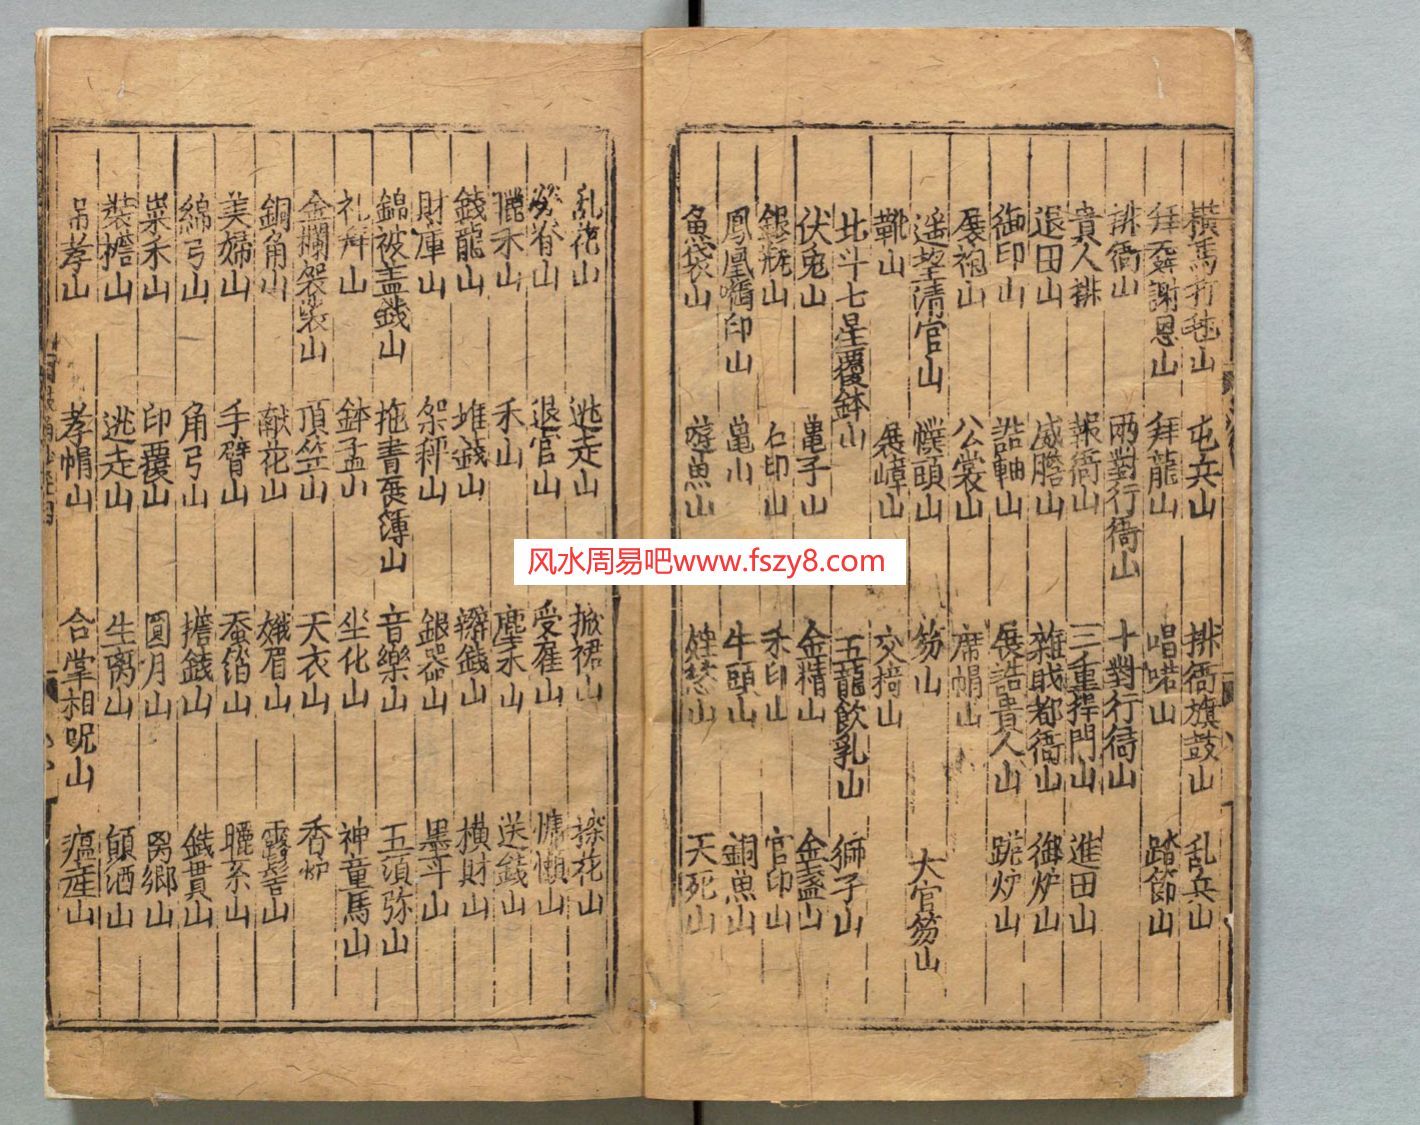 橫馬打毬山 屯兵山 排衙旗鼓山 乱兵山
拜舞謝恩山 拜龍山 唱喏山 踏節山
排衙山 兩對行衙山 十對行衙山
貴人排 報衙山 三重捍門山 進田山
退田山 威膽山 雜職都衙山 御炉山
御印山 誥軸山 展誥貴人山 蹴炉山
展袍山 公裳山 席帽山
遥望清官山 幞頭山 笏山 大官笏山
靴山 展嶂山 交椅山
北斗七星覆鉢山 五龍飲乳山 獅子山
伏兔山 亀子山 金精山 金盞山
銀瓶山 石印山 禾印山 官印山
鳳凰啣印山 亀山 牛頭山 銅魚山
魚袋山 遊魚山 愁山 天死山
乱花山 逃走山 掀裙山 探花山
山 退官山 受雇山 慵懶山
禾山 禾山 塵禾山 送錢山
錢龍山 堆錢山 錢山 橫財山
財庫山 架秤山 銀器山 墨斗山
錦被盖錢山 拖書展薄山 音樂山 五須弥山
礼拜山 鉢盂山 坐化山 神童馬山
金襴袈裟山 頂笠山 天衣山 香炉
銅角山 献花山 娥眉山 露髻山
美婦山 手臂山 蚕箔山 山
綿弓山 角弓山 擔錢山 錢貫山
粟禾山 印覆山 圓月山 山
裝擔山 逃走山 生离山 顛酒山
吊孝山 孝帽山 合掌相呪山 瘟山
风水周易吧www.fszy8.com